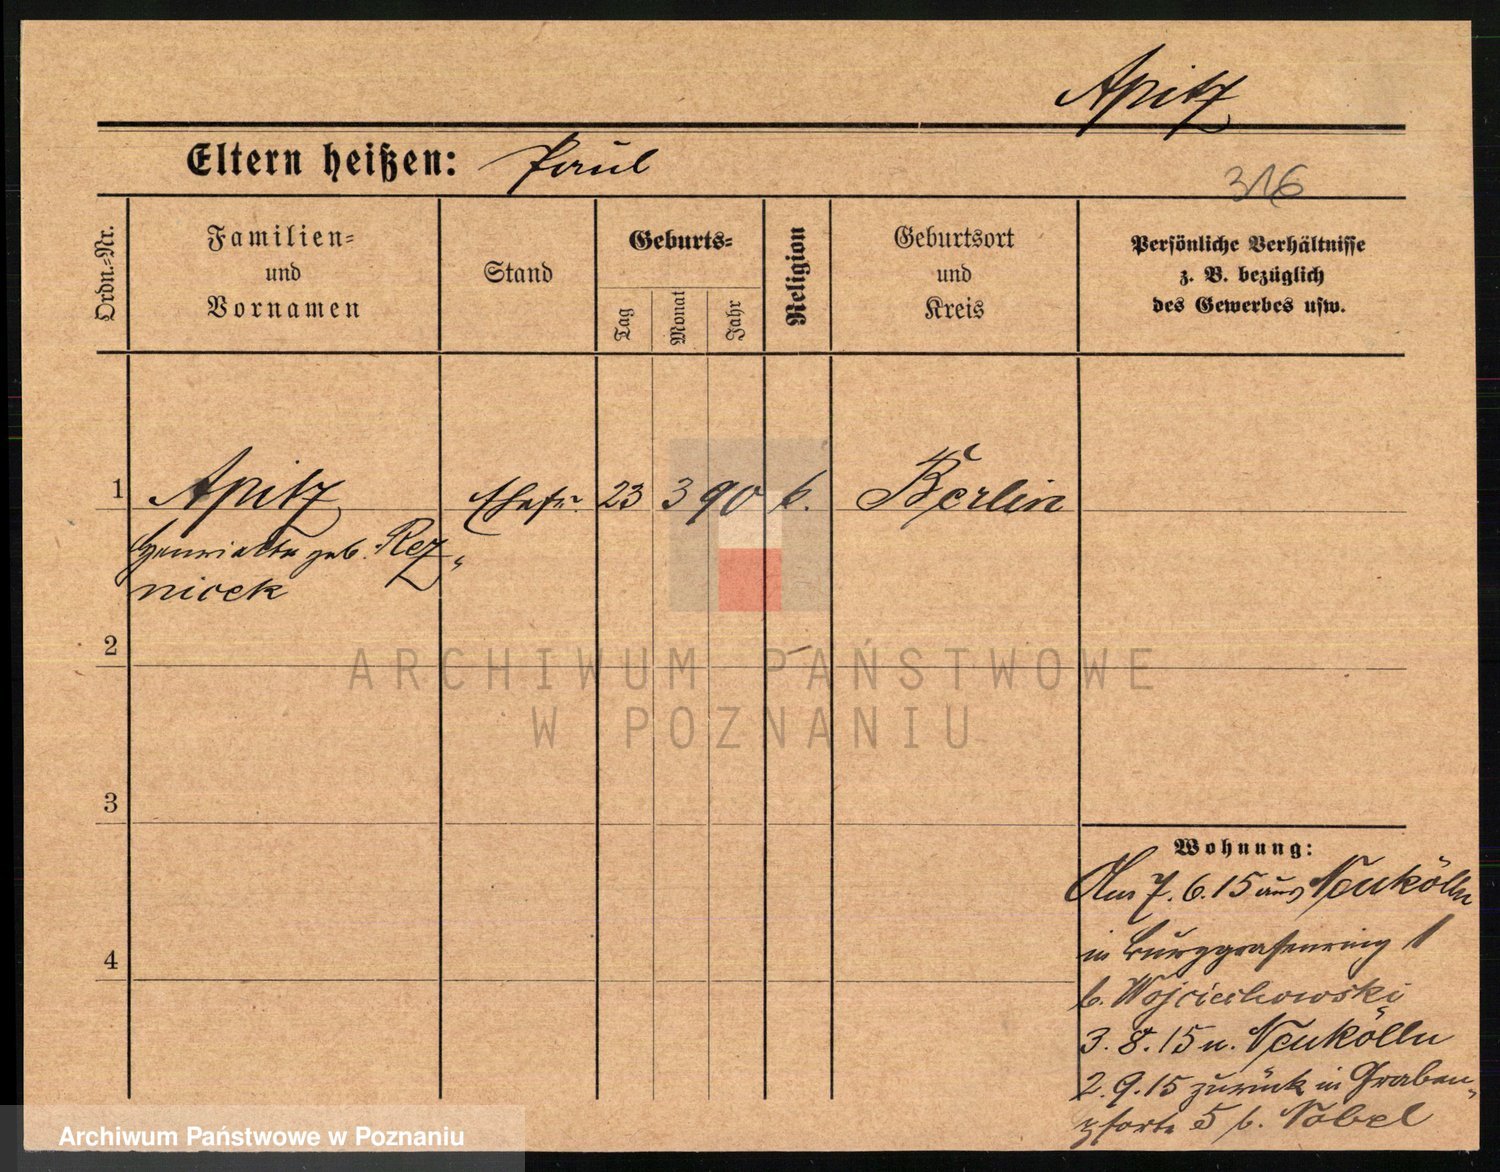 Apitz
Eltern heißen: Paul
316
Ordn.-Nr.
Familien-
und
Vornamen
Stand
Geburts-
Tag
Monat
Jahr
Religion
Geburtsort
und
Kreis
Persönliche Verhältnisse
z. B. bezüglich
des Gewerbes usw.
1 Apitz Ehefr. 23 3 90 k. Berlin
Henriette geb. Rez-
nicek
2
ARCHIWUM PAŃSTWOWE
W POZNANIU
3
Wohnung:
Am 7.6.15 aus Neukölln
in Burggrafenring 1
b. Wojciechowski
4
3.8.15 n. Neukölln
2.9.15 zurück in Graben-
pforte 5 b. Nobel
Archiwum Państwowe w Poznaniu